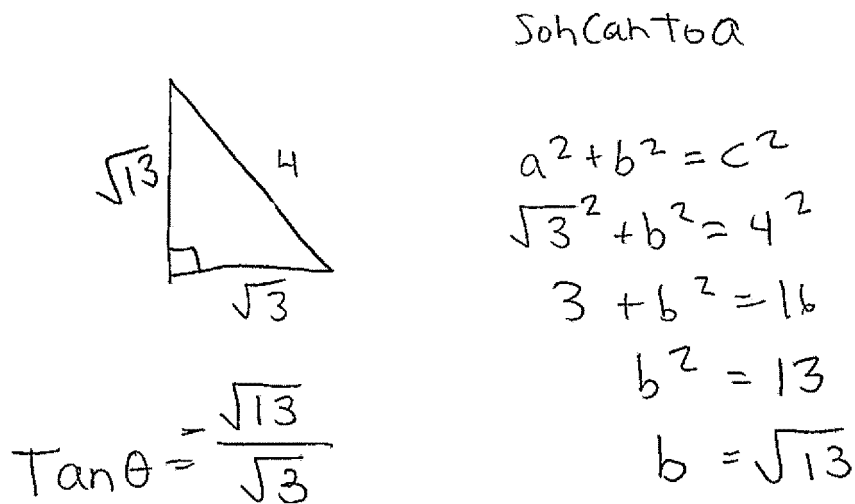 SohCahToa
√13
4
√3
a² + b² = c²
√3² + b² = 4²
3 + b² = 16
b² = 13
b = √13
Tanθ = -√13/√3